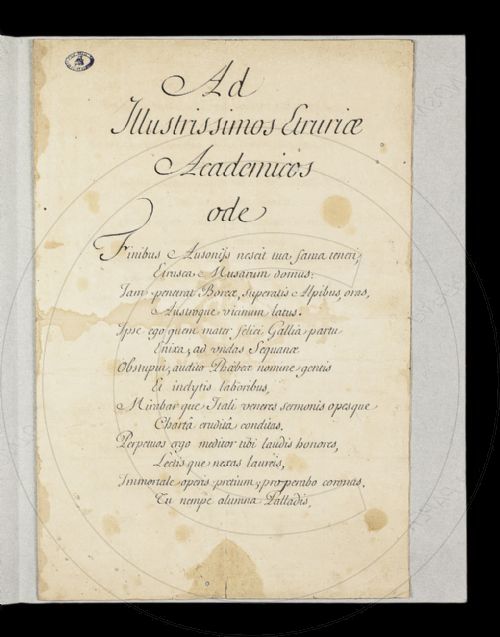 Ad
Illustrissimos Etruriæ
Academicos
ode
Finibus Ausonijs nescit tua fama teneri,
Etrusca Musarum domus:
Jam penetrat Boreæ, superatis Alpibus, oras,
Austroque vicinum latus.
Ipse ego quem mater felici Gallia partu
Enixa, ad vndas Sequanæ
Obstupui, audito Phœbeæ nomine gentis
Et inclytis laboribus,
Mirabar que Itali veneres sermonis opesque
Chartâ eruditâ conditas.
Perpetuos ergo meditor tibi laudis honores,
Lectis que nexas laureis,
Immortale operis pretium, properabo coronas.
Tu nempe alumna Palladis,